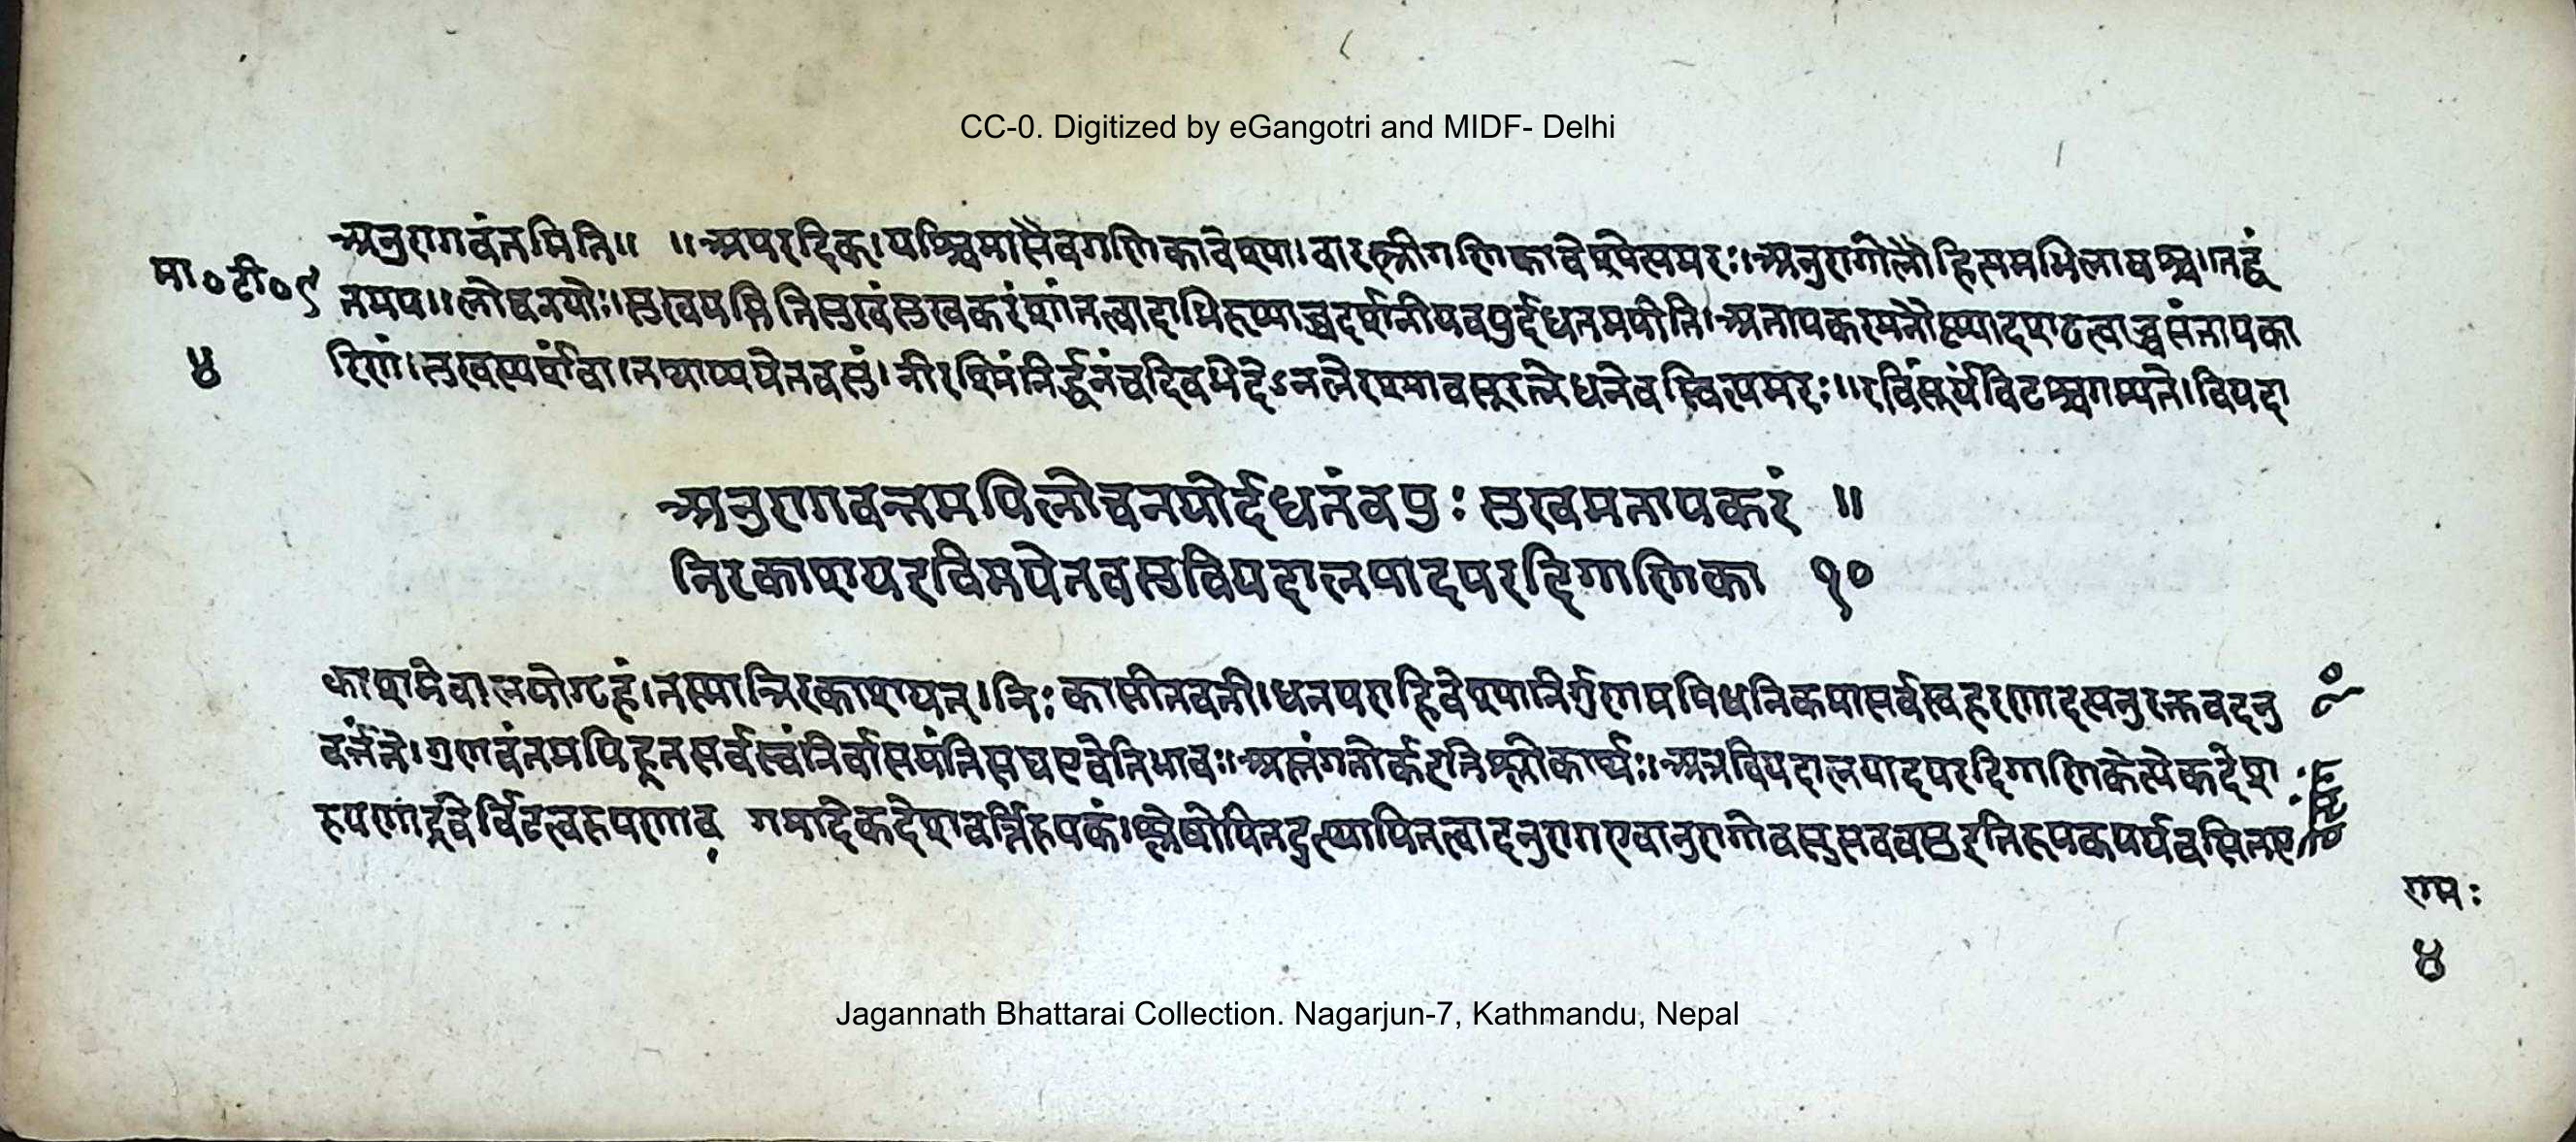 CC-0. Digitized by eGangotri and MIDF- Delhi
अनुरागवंतमिति॥ ॥अपरदिक्।पश्चिमासैवगणिकावेश्या।वारस्त्रीगणिकावेश्येत्यमरः।अनुरागोलौहित्यमभिलाषश्च।तद्वं
मा०टी०९
तमप॥लोचनयोः।सुखयतीतिसुखंसुखकरंशांतत्वादाभिरूप्याच्चदर्शनीयवपुर्दधतमपीति।अतापकरमनौष्ण्यादशठत्वाच्चसंतापका
४
रिणं।सुखस्पर्शंवा।तथाप्यपेतवसुं।नीरश्मिंनिर्द्धनंचदेवभेदेऽनलेरश्मावसूरत्नेधनेवस्वित्यमरः॥रविंसूर्यंविटश्चगम्यते।वियदा
अनुरागवन्तमपिलोचनयोर्दधतंवपुः सुखमतापकरं ॥
निरकाशयरविमपेतवसुवियदालयादपरदिग्गणिका १०
काशमेवालयोगृहं।तस्मान्निरकाशयत्।निः कासीतवती।धनपराहिवेश्यानिर्गुणमपिधनिकमासर्वस्वहरणादत्यनुरक्तवदनु
वर्त्तते।गुणवंतमपिहृतसर्वस्वंनिर्वासयंतिसद्यएवेतिभावः।अस्तंगतोर्कइतिश्लोकार्थः।अत्रवियदालयादपरदिग्गणिकेत्येकदेश
रूपणाद्रवेर्विटत्वरूपणाव गमादेकदेशवर्त्तिरूपकं।श्लेषोपितदुत्थापितत्वादनुरागएवानुरागोवसुसववसुइतिरूपकपर्यवसितए
रामः
४
Jagannath Bhattarai Collection. Nagarjun-7, Kathmandu, Nepal